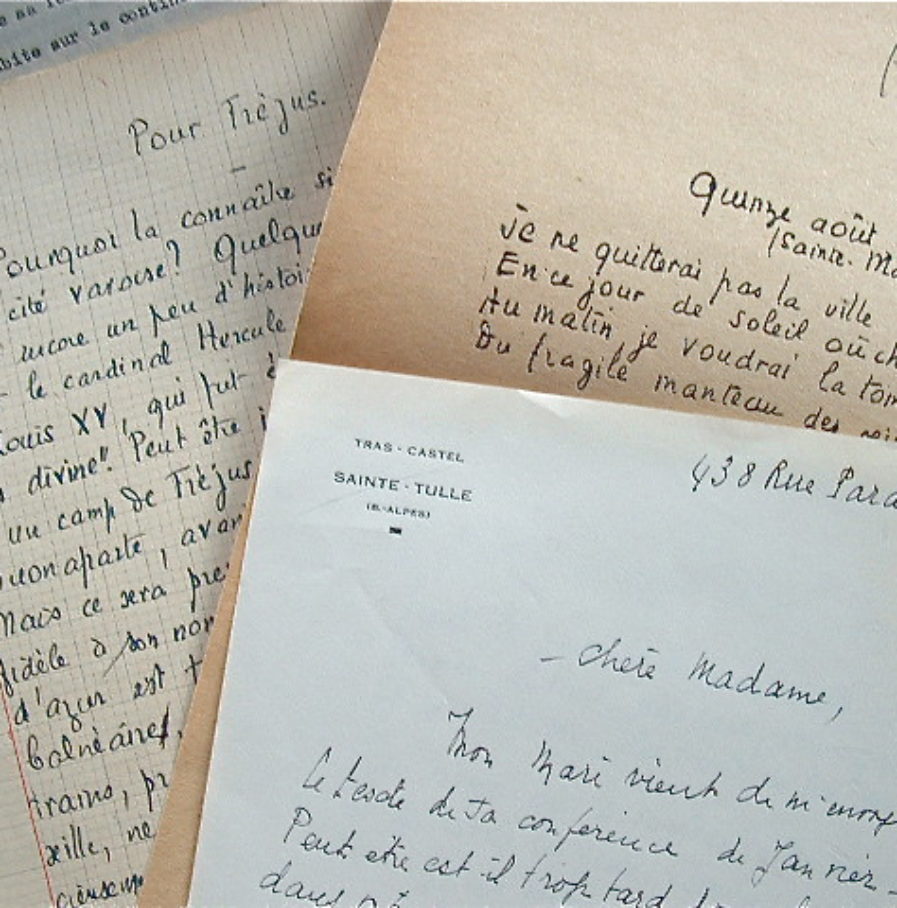 bite sur le contin
Pour Fréjus.
Pourquoi la connaître si
cité varoise? Quelque
encore un peu d'histoi
le cardinal Hercule
Louis XV, qui fut
divine". Peut être
un camp de Fréjus
uonaparte, avan
Mais ce sera pre
fidèle à son nom
d'azur est
balnéaires,
trains, pr
xille, ne
cieusem
Quinze août
(Sainte-Ma
Je ne quitterai pas la ville
En ce jour de soleil où ch
Au matin, je voudrai la tom
Du fragile manteau des
TRAS-CASTEL
SAINTE-TULLE
(B.-ALPES)
438 Rue Para
- Chère Madame,
Mon Mari vient de m'envoy
le texte de sa conférence de Janvier-
Peut être est-il trop tard
dans